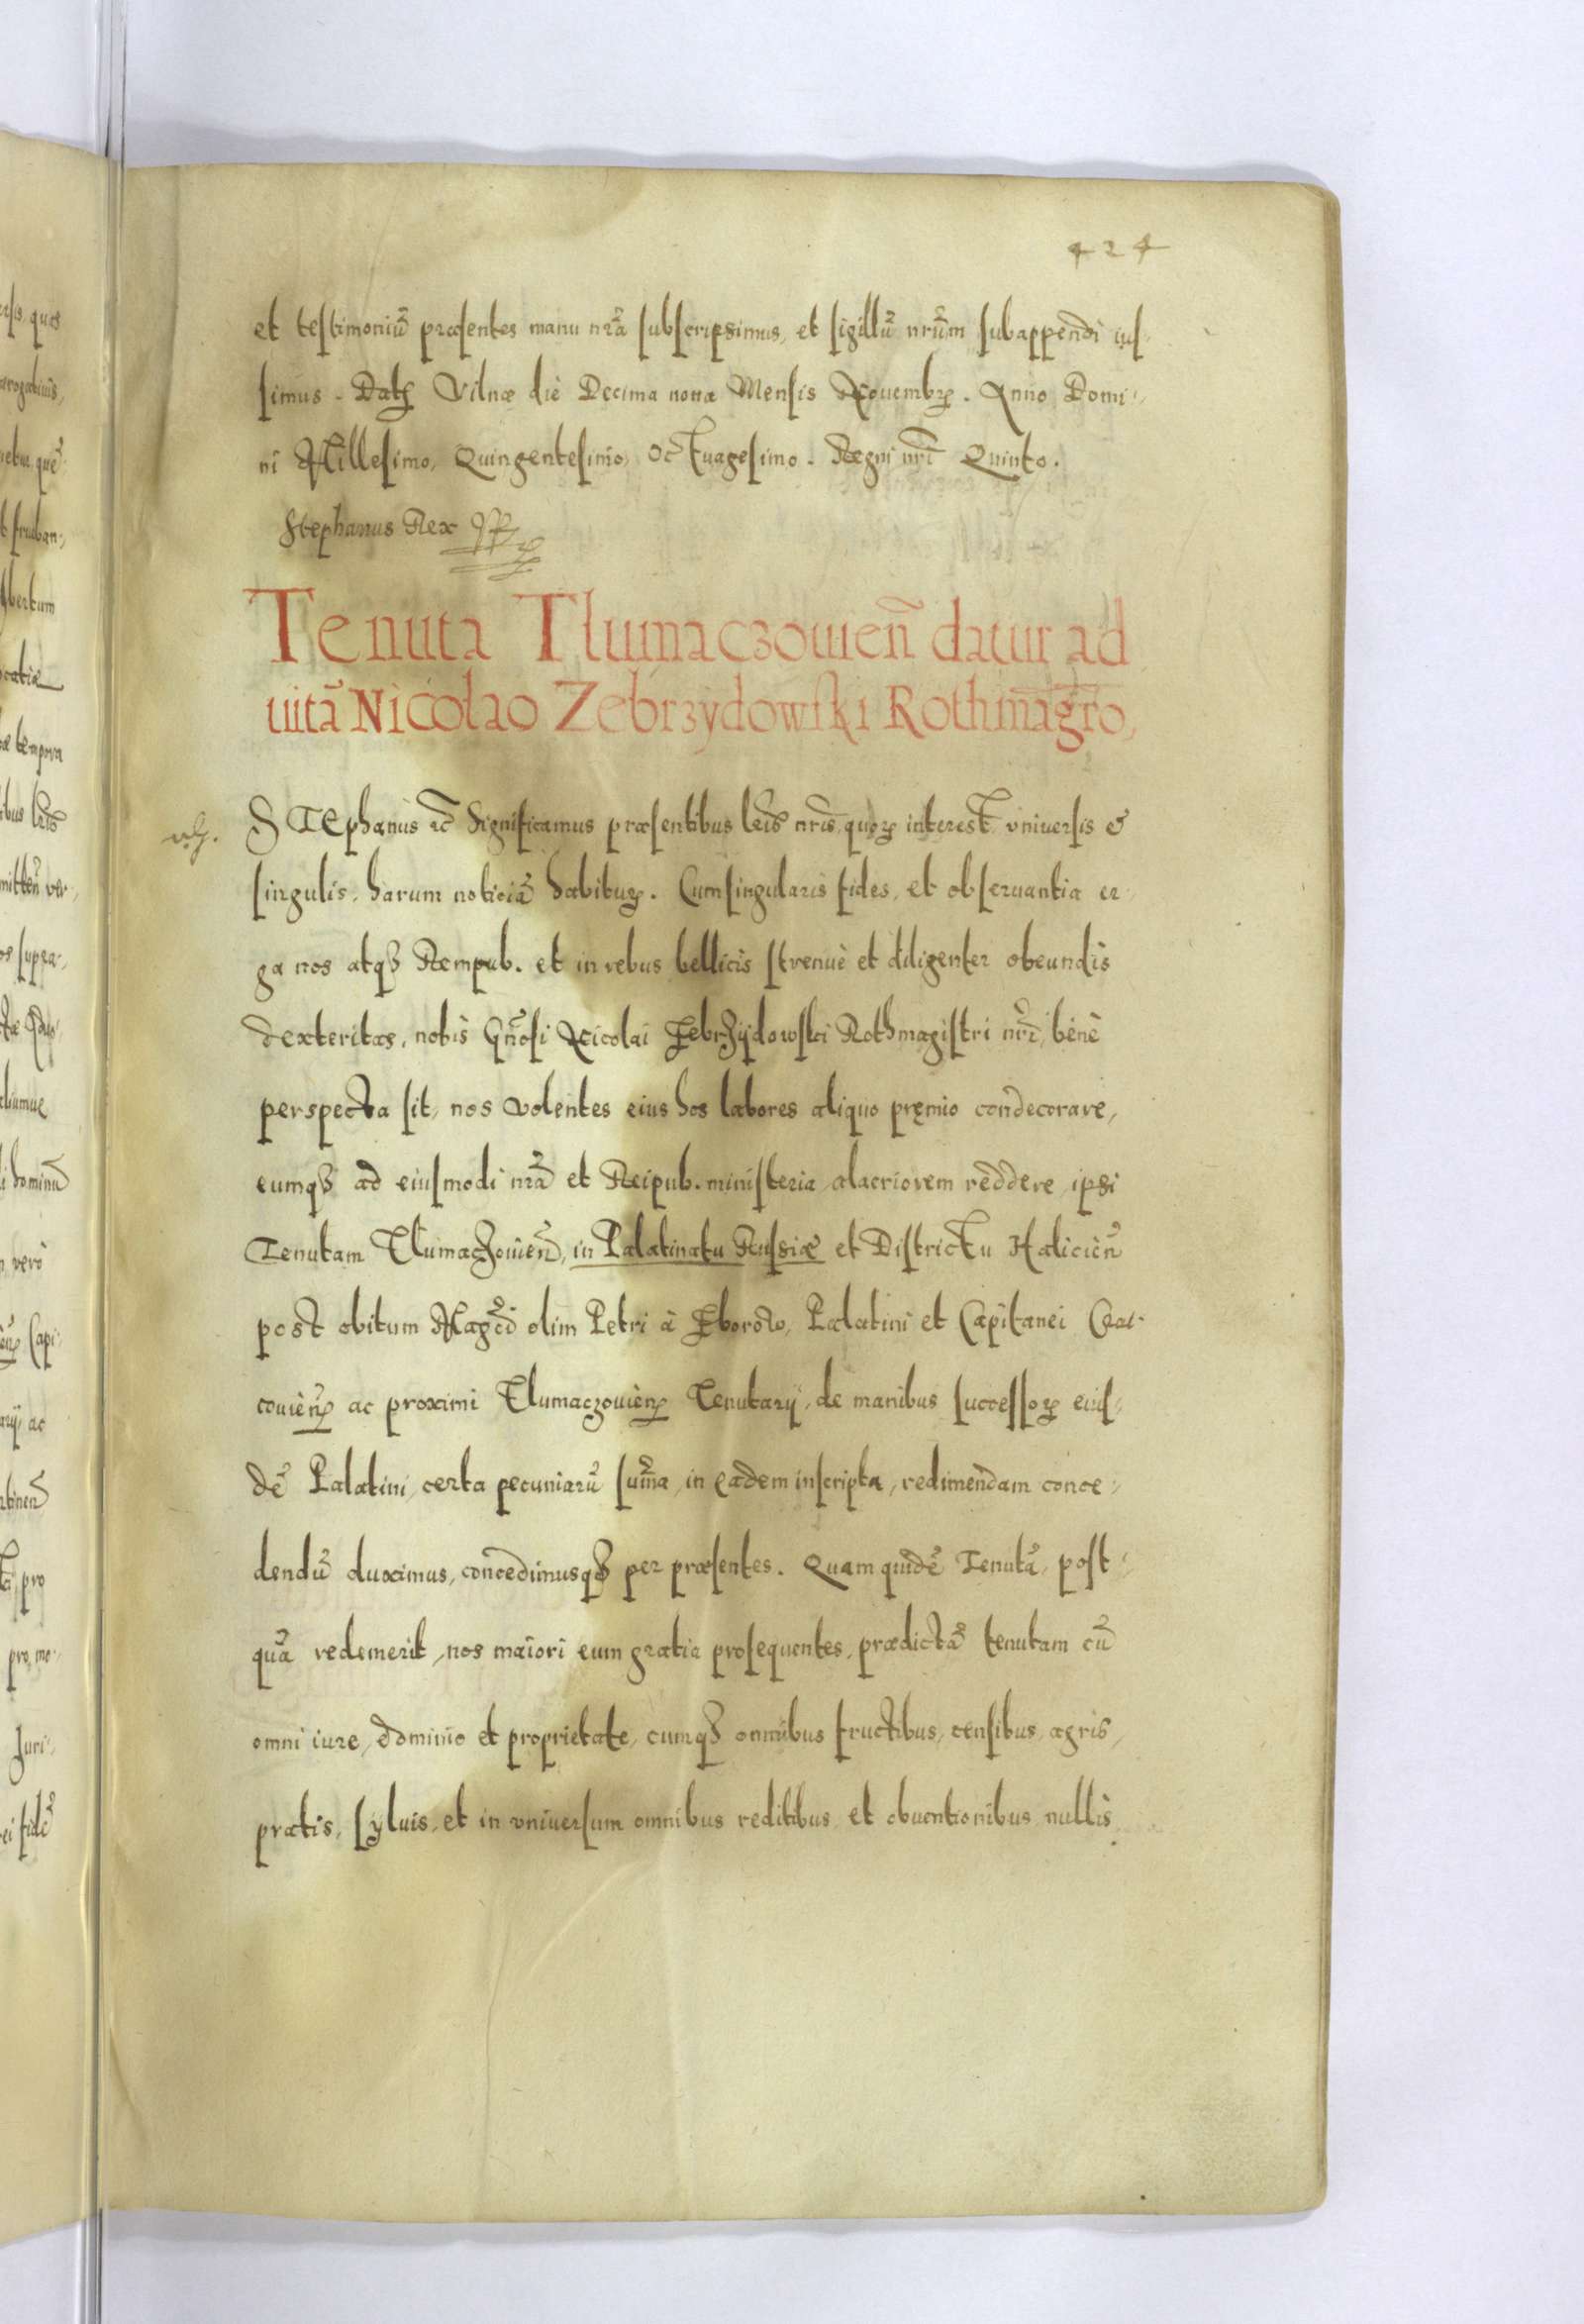 424
et testimoniũ præsentes manu nrã subscripsimus, et sigillũ nrũm subappendi ius-
simus. Datȝ Vilnæ die Decima nona Mensis Nouembrꝫ. Anno Domi-
ni Millesimo, Quingentesimo, Octuagesimo. Regni nrĩ Quinto.
Stephanus Rex
Tenuta Tlumaczouień datur ad
uitã Nicolao Zebrzydowski Rothmagrõ,
STEphanus ꝛc̃ Significamus præsentibus lr̃is nr̃is, quorꝝ interest, vniuersis &
singulis, harum noticiã habiturꝝ. Cum singularis fides, et obseruantia er-
ga nos atqꝫ Rempub. et in rebus bellicis strenuè et diligenter obeundis
dexteritas, nobis Gñosi Nicolai Zebrzydowski Rothmagistri nrĩ, benè
perspecta sit, nos volentes eius hos labores aliquo pręmio condecorare,
eumqꝫ ad eiusmodi nrã et Reipub. ministeria alacriorem reddere, ipsi
Tenutam Tlumaczouieñ, in Palatinatu Russiæ et Districtu Halicieñ
post obitum Magcĩ olim Petri à Zborow, Palatini et Capitanei Cra-
couieñ ac proximi Tlumaczouieñ Tenutarij, de manibus successorꝝ eius-
dẽ Palatini, certa pecuniarũ sum̃a, in eadem inscripta, redimendam conce-
dendũ duximus, concedimusqꝫ per præsentes. Quam quidẽ Tenutã, post-
quã redemerit, nos maiori eum gratia prosequentes, prædictã tenutam cũ
omni iure, dominio et proprietate, cumqꝫ omnibus fructibus, censibus, agris,
pratis, syluis, et in vniuersum omnibus reditibus et obuentionibus nullis